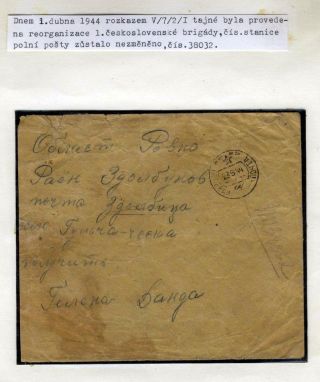 Dnem 1.dubna 1944 rozkazem V/7/2/I tajné byla provede-
na reorganizace 1.československé brigády,čís.stanice
polní pošty zůstalo nezměněno,čís.38032.
Област Ровно
Раон Здолбунов
почта Здолбица
Гульча-ческа
получить
Гелена Ванда